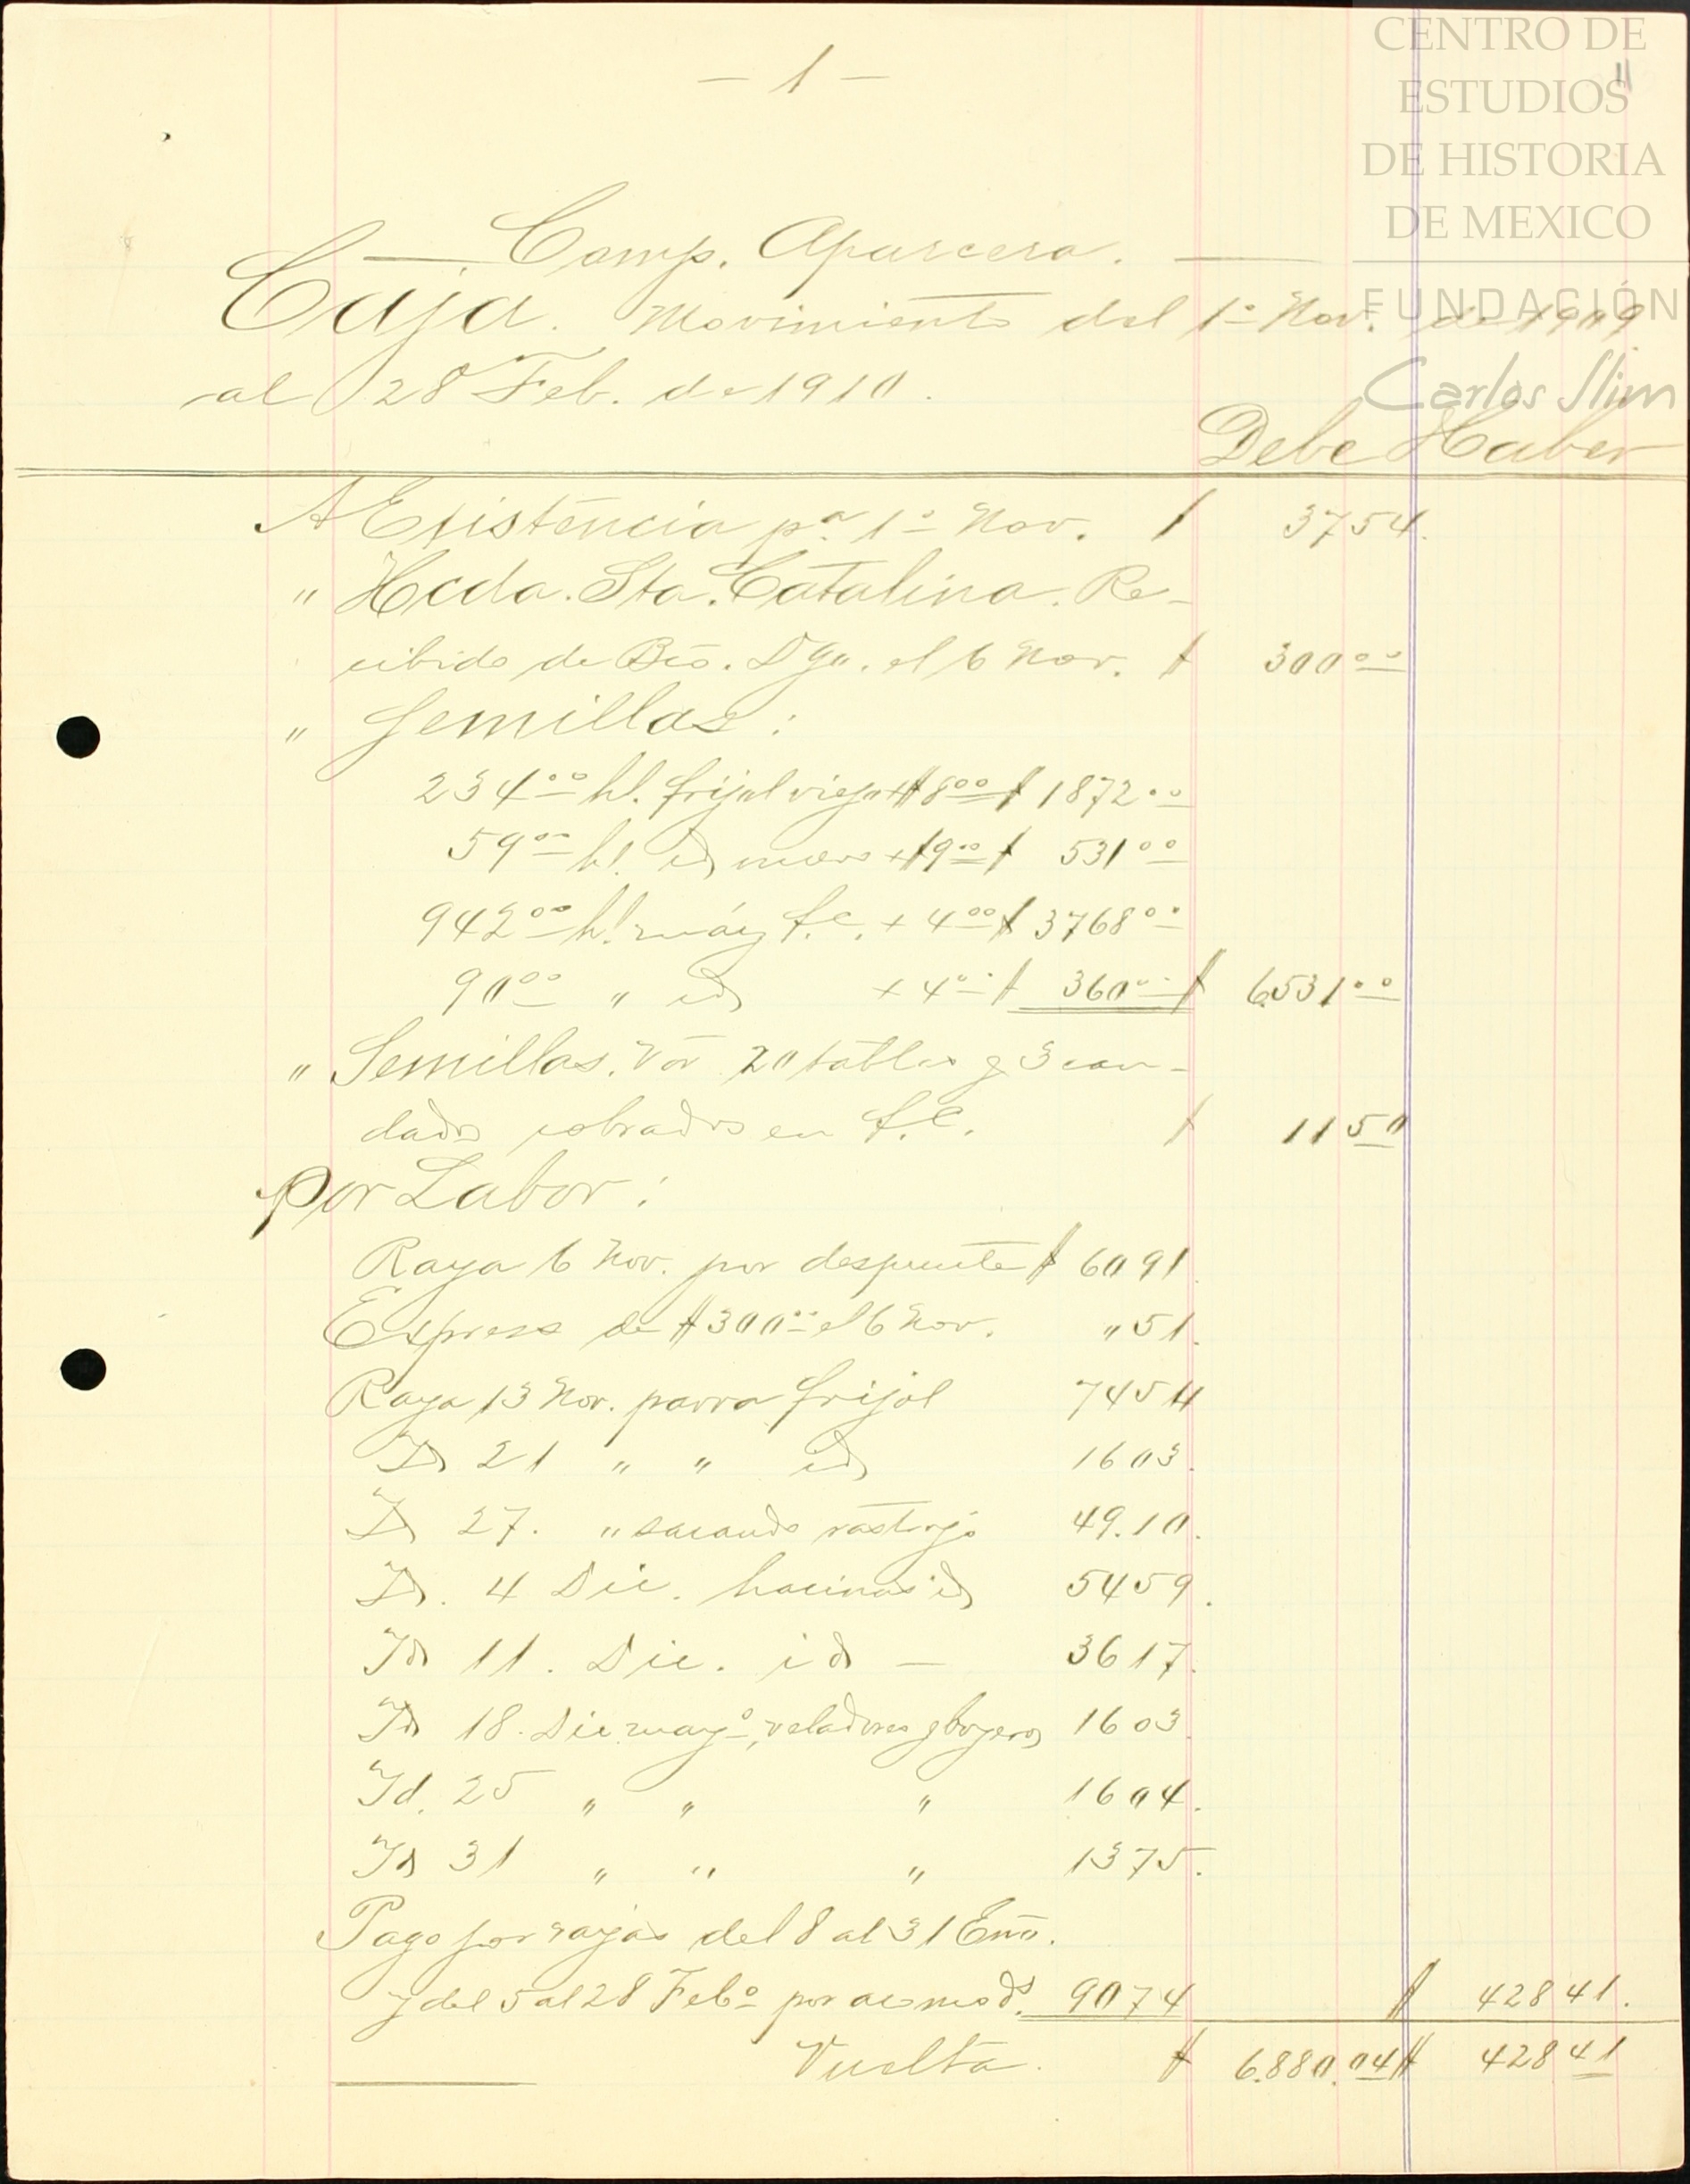 — 1 —
11
CENTRO DE
ESTUDIOS
DE HISTORIA
DE MEXICO
FUNDACIÓN
Carlos Slim
— Comp. Aparcera. —
Caja. Movimiento del 1º Nov. de 1909
al 28 Feb. de 1910.
Debe Haber
A Existencia pª 1º Nov. $ 3754.
" Hcda. Sta. Catalina. Re-
cibido de Bco. Dgo. el 6 Nov. $ 300.00
" Semillas:
234.00 hl. frijol viejo + $8.00 $ 1872.00
59.00 hl. id nuevo + $9.00 $ 531.00
942.00 hl. maíz f.c. + 4.00 $ 3768.00
90.00 " id + 4.00 $ 360.00 $ 6.531.00
" Semillas. Vor 20 tablas y 3 can-
dados cobrados en f.c. $ 11 50
Por Labor:
Raya 6 Nov. por despunte $ 60 91
Express de $300.00 el 6 Nov. " 51.
Raya 13 Nov. parra frijol 74 54
Id 21 " " id 16 03.
Id 27. " sacando rastrojo 49.10.
Id. 4 Dic. hacinas id 54 59.
Id 11. Dic. id — 36 17.
Id 18. Dic. mayº, veladores y boyeros 16 03
Id. 25 " " " 16 04.
Id 31 " " " 13 75.
Pago por rayas del 8 al 31 Eno.
y del 5 al 28 Febº por acomods. 90 74 $ 428 41.
Vuelta. $ 6.880.04 $ 428 41